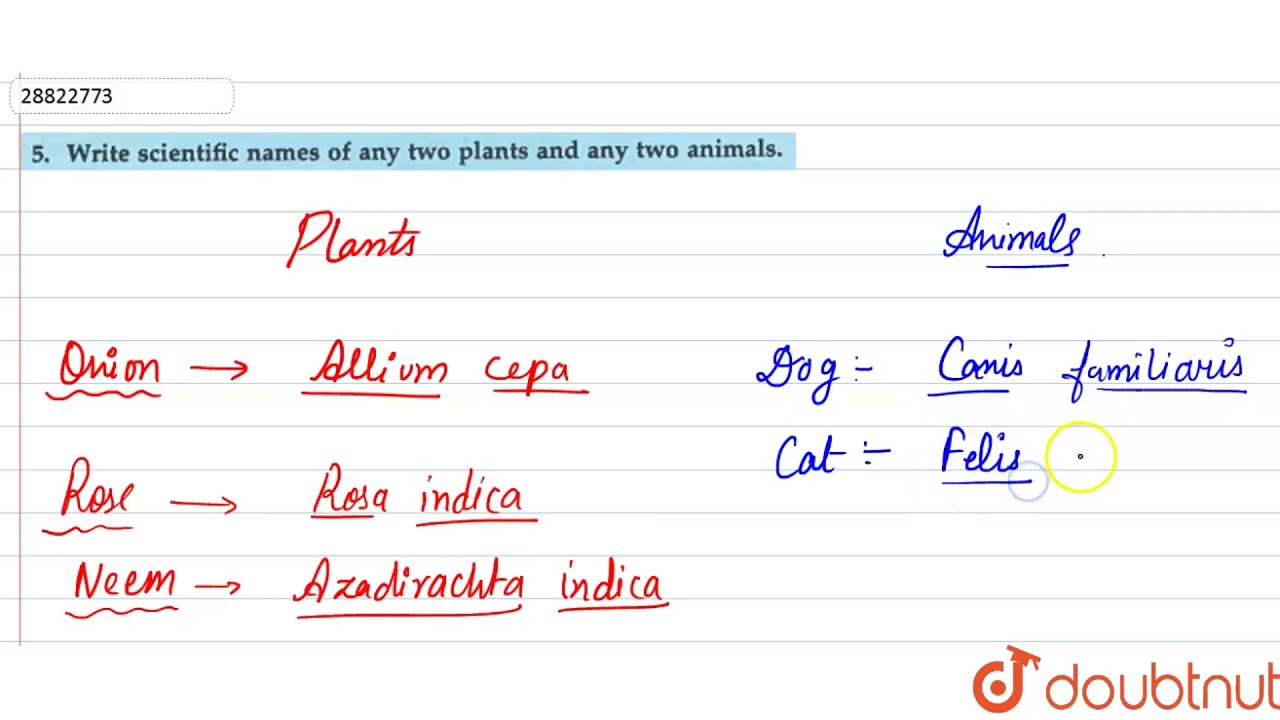 28822773
5. Write scientific names of any two plants and any two animals.
Plants
Animals
Onion → Allium cepa
Dog :- Canis familiaris
Cat :- Felis
Rose → Rosa indica
Neem → Azadirachta indica
doubtnut